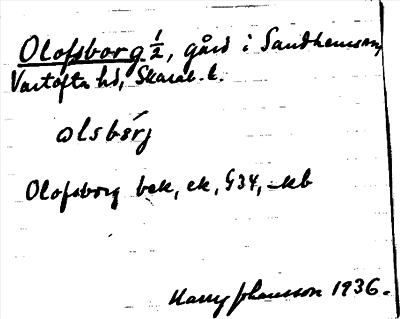 Olofsborg ½, gård i Sandhemssn,
Vartofta hd, Skarab. l.
olsbórj
Olofsborg bek, ek, G34, -kb
Harry Johansson 1936.